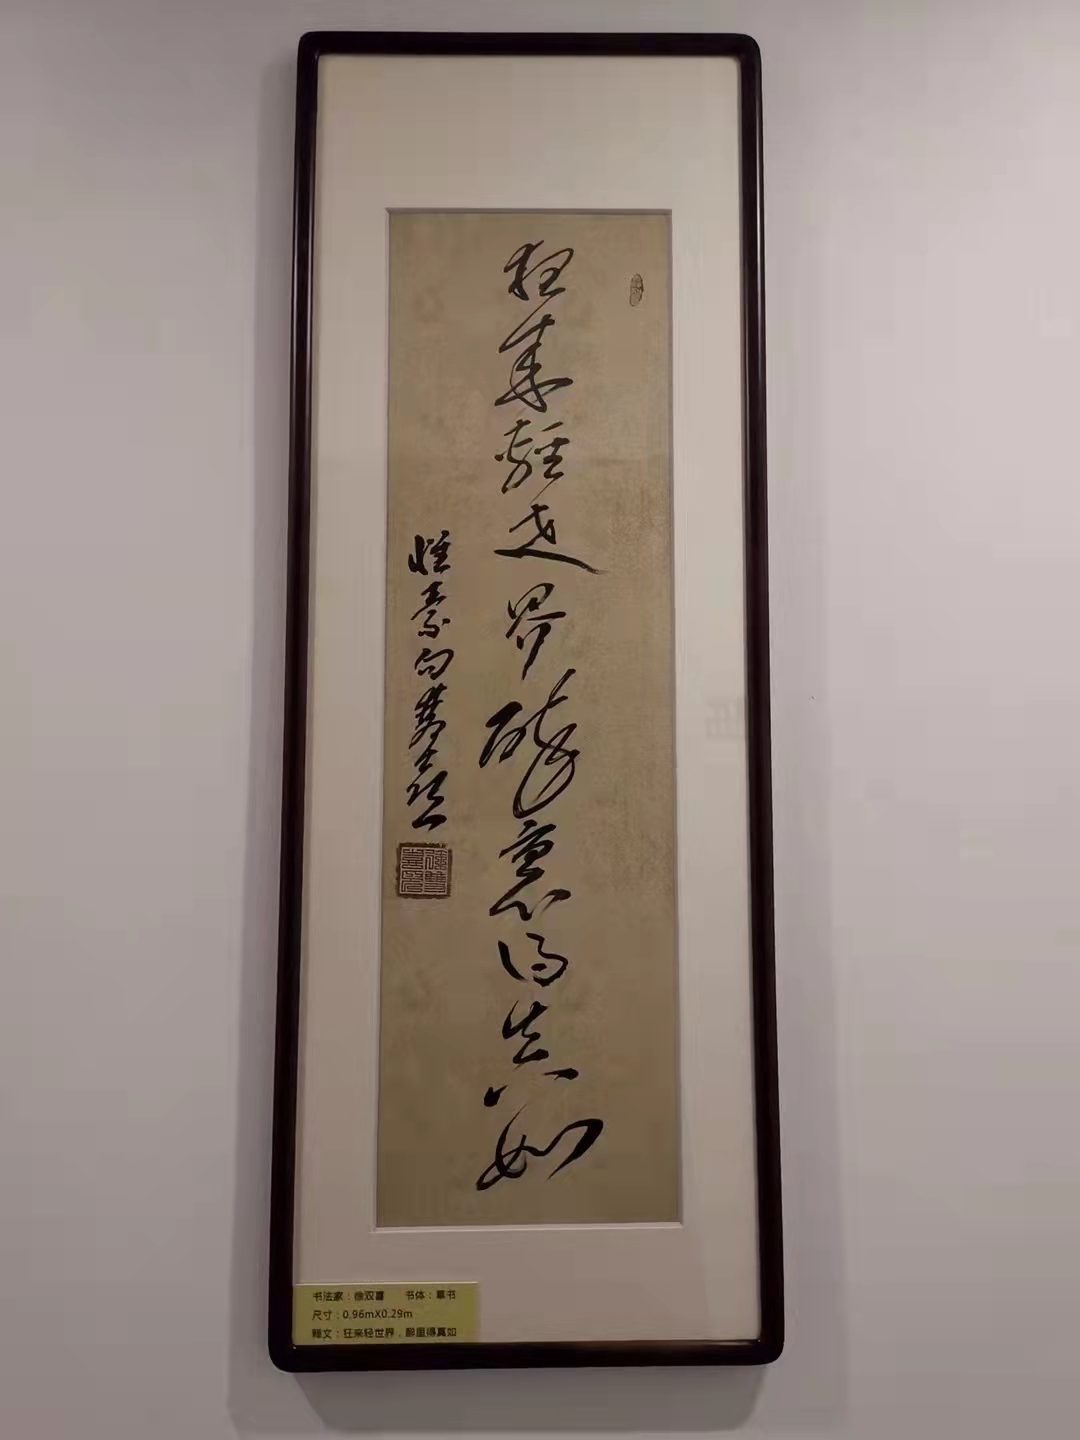 狂來輕世界醉裏得真如
懷素句雙喜
书法家：徐双喜 书体：草书
尺寸：0.96mX0.29m
释文：狂来轻世界，醉里得真如